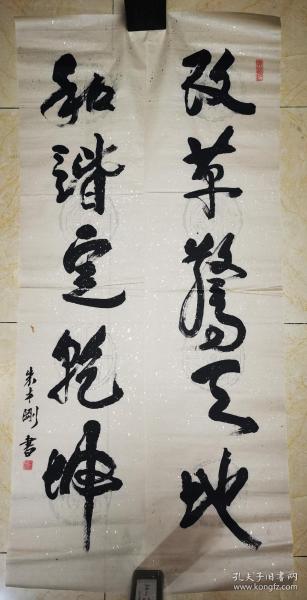 改革惊天地
和谐定乾坤
朱才刚书
孔夫子旧书网
www.kongfz.com